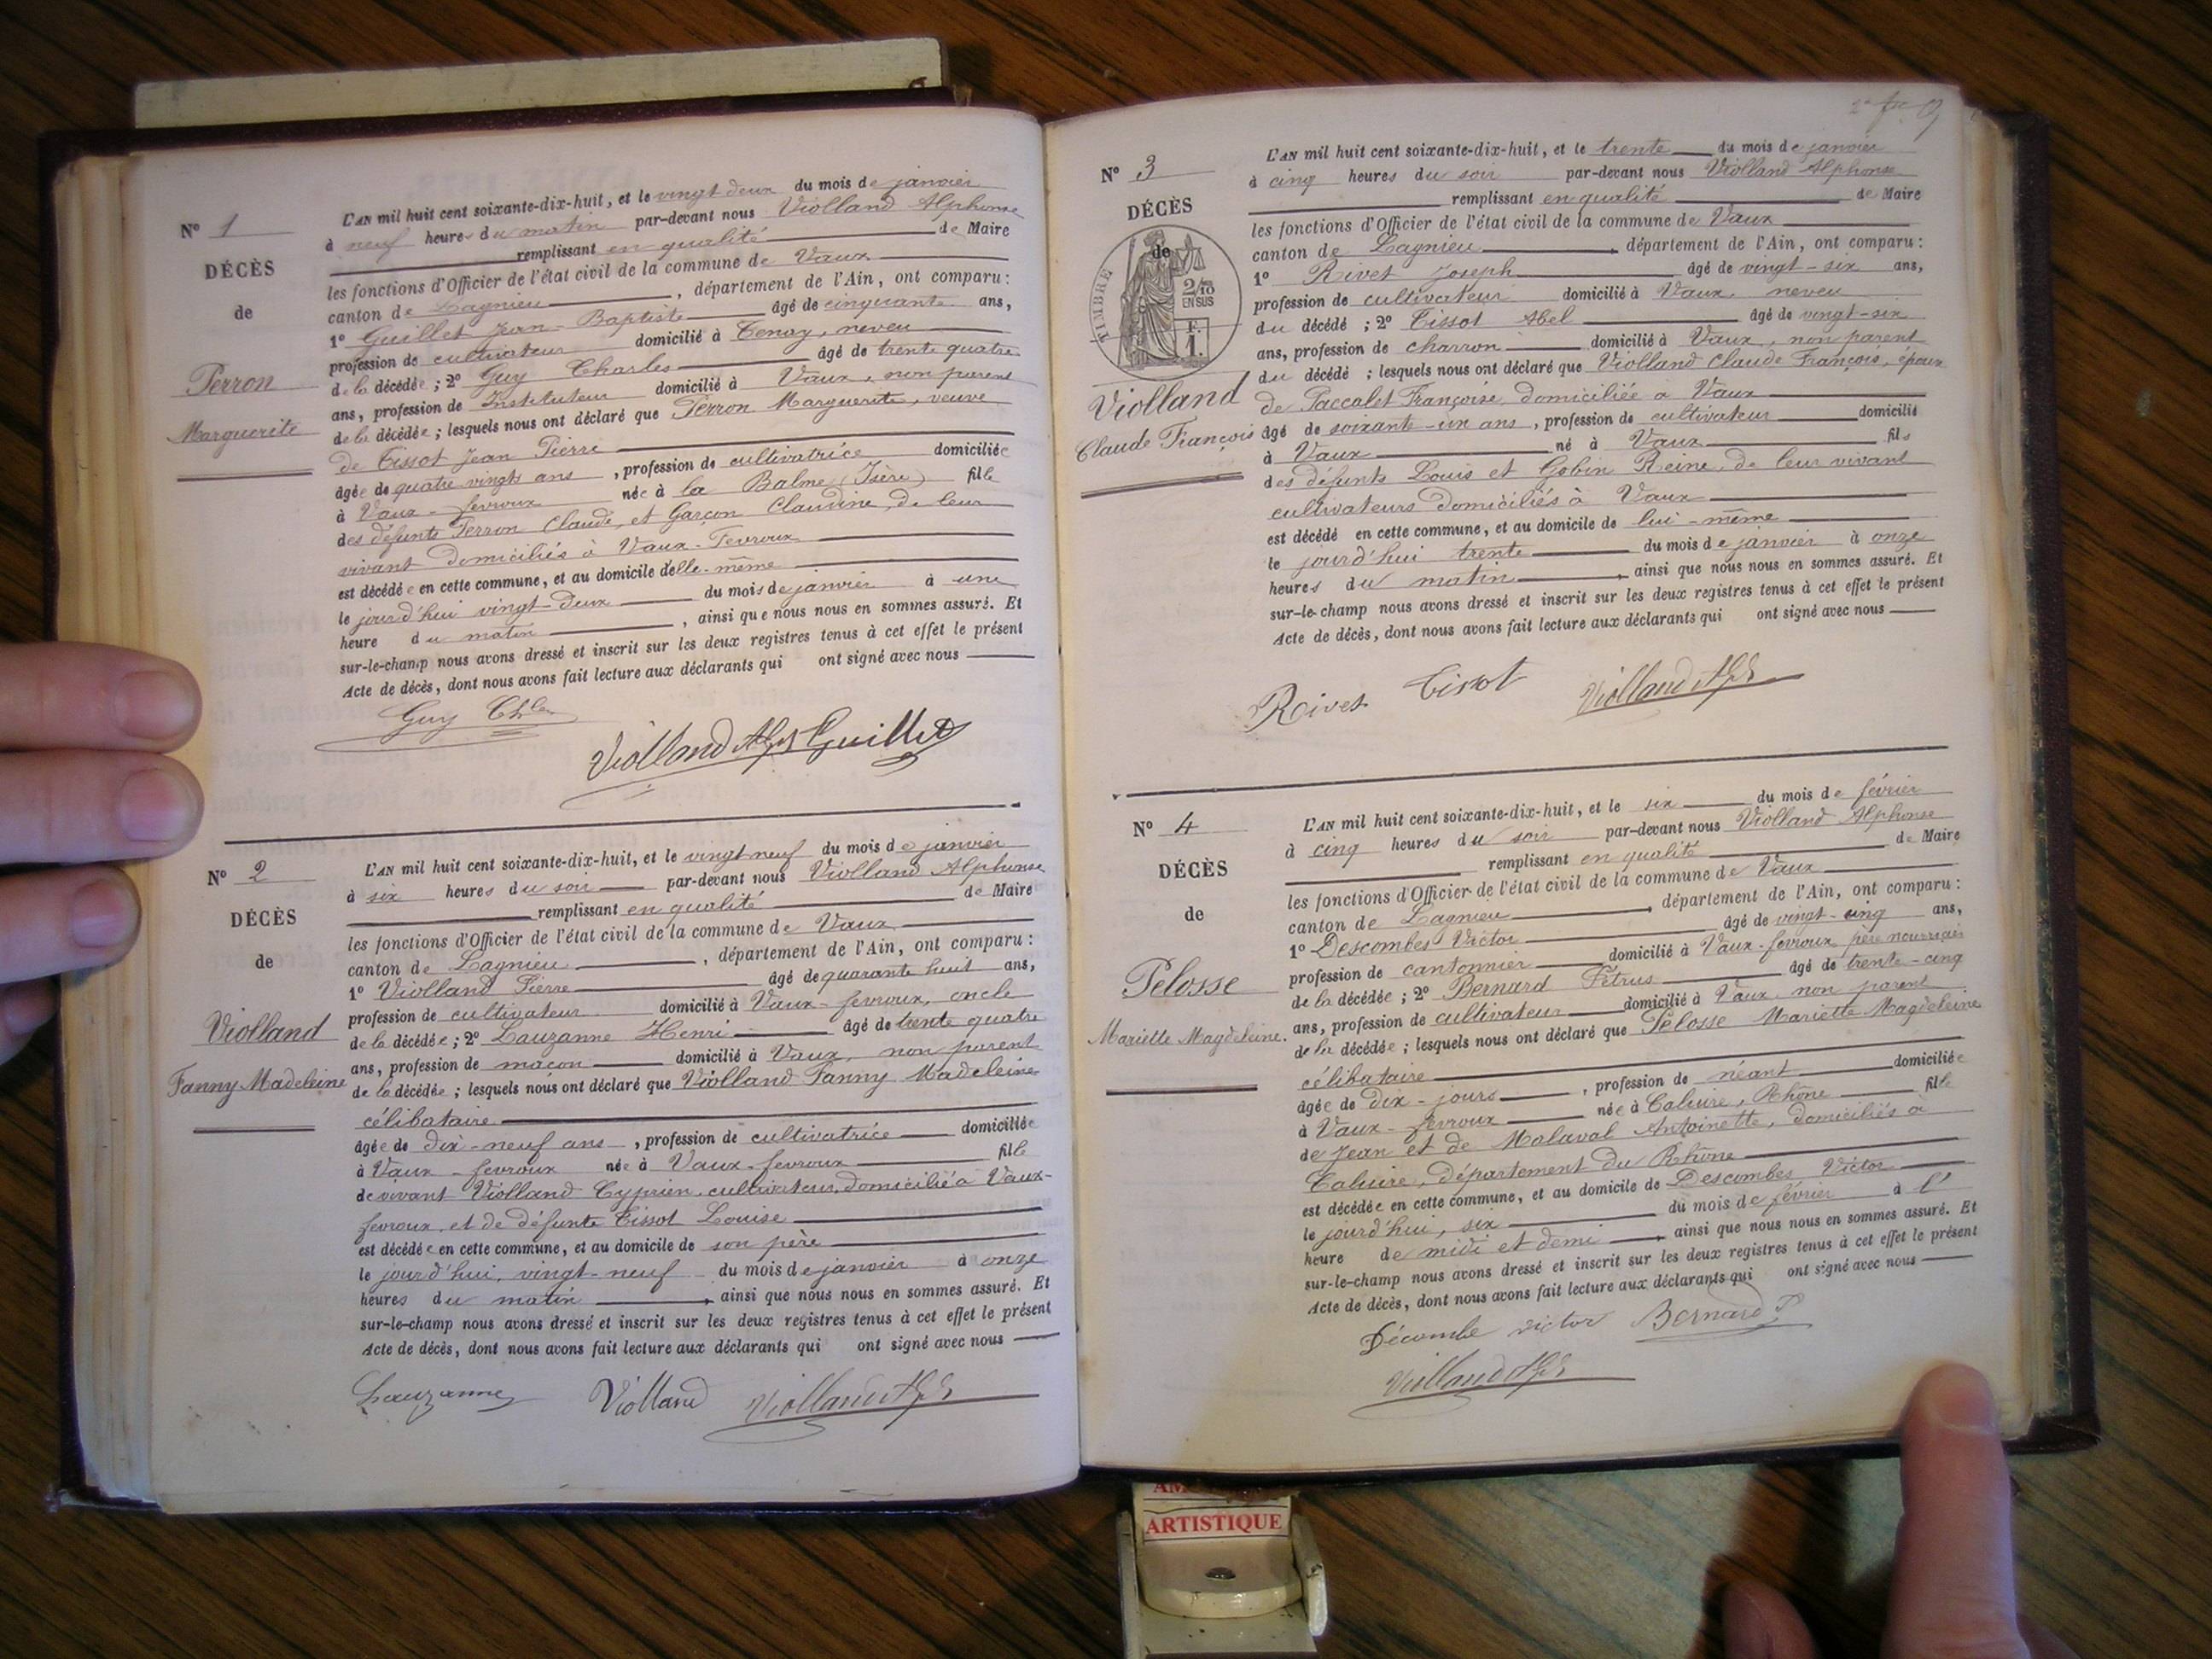 N° 1
DÉCÈS
de
Perron
Marguerite
L'AN mil huit cent soixante-dix-huit, et le vingt deux du mois de janvier
à neuf heures du matin par-devant nous Violland Alphonse
remplissant en qualité de Maire
les fonctions d'Officier de l'état civil de la commune de Vaux
canton de Lagnieu, département de l'Ain, ont comparu:
1° Guillet Jean-Baptiste âgé de cinquante ans,
profession de cultivateur domicilié à Tenay, neveu
de la décédée; 2° Guy Charles âgé de trente quatre
ans, profession de Instituteur domicilié à Vaux, non parent
de la décédée; lesquels nous ont déclaré que Perron Marguerite, veuve
de Tissot Jean Pierre
âgée de quatre vingts ans, profession de cultivatrice domiciliée
à Vaux-fevroux née à la Balme (Isère) fille
des défunts Perron Claude, et Garçon Claudine, de leur
vivant domiciliés à Vaux-Fevroux
est décédée en cette commune, et au domicile d'elle-même
le jourd'hui vingt-deux du mois de janvier à une
heure du matin, ainsi que nous nous en sommes assuré. Et
sur-le-champ nous avons dressé et inscrit sur les deux registres tenus à cet effet le présent
Acte de décès, dont nous avons fait lecture aux déclarants qui ont signé avec nous
Guy Chles
Violland Alph Guillet
N° 2
DÉCÈS
de
Violland
Fanny Madeleine
L'AN mil huit cent soixante-dix-huit, et le vingt neuf du mois de janvier
à six heures du soir par-devant nous Violland Alphonse
remplissant en qualité de Maire
les fonctions d'Officier de l'état civil de la commune de Vaux
canton de Lagnieu, département de l'Ain, ont comparu:
1° Violland Pierre âgé de quarante huit ans,
profession de cultivateur domicilié à Vaux-fevroux, oncle
de la décédée; 2° Lauzanne Henri âgé de trente quatre
ans, profession de maçon domicilié à Vaux, non parent
de la décédée; lesquels nous ont déclaré que Violland Fanny Madeleine
célibataire
âgée de dix-neuf ans, profession de cultivatrice domiciliée
à Vaux-fevroux née à Vaux-fevroux fille
de vivant Violland Cyprien, cultivateur, domicilié à Vaux-
fevroux, et de défunte Tissot Louise
est décédée en cette commune, et au domicile de son père
le jourd'hui, vingt-neuf du mois de janvier à onze
heures du matin, ainsi que nous nous en sommes assuré. Et
sur-le-champ nous avons dressé et inscrit sur les deux registres tenus à cet effet le présent
Acte de décès, dont nous avons fait lecture aux déclarants qui ont signé avec nous
Lauzanne Violland Violland Alph
N° 3
DÉCÈS
de
TIMBRE
2/10
EN SUS
1 F.
Violland
Claude François
L'AN mil huit cent soixante-dix-huit, et le trente du mois de janvier
à cinq heures du soir par-devant nous Violland Alphonse
remplissant en qualité de Maire
les fonctions d'Officier de l'état civil de la commune de Vaux
canton de Lagnieu, département de l'Ain, ont comparu:
1° Rivet Joseph âgé de vingt-six ans,
profession de cultivateur domicilié à Vaux, neveu
du décédé; 2° Tissot Abel âgé de vingt-six
ans, profession de charron domicilié à Vaux, non parent
du décédé; lesquels nous ont déclaré que Violland Claude François, époux
de Paccalet Françoise, domiciliée à Vaux
âgé de soixante-un ans, profession de cultivateur domicilié
à Vaux né à Vaux fils
des défunts Louis et Gobin Reine, de leur vivant
cultivateurs domiciliés à Vaux
est décédé en cette commune, et au domicile de lui-même
le jourd'hui trente du mois de janvier à onze
heures du matin, ainsi que nous nous en sommes assuré. Et
sur-le-champ nous avons dressé et inscrit sur les deux registres tenus à cet effet le présent
Acte de décès, dont nous avons fait lecture aux déclarants qui ont signé avec nous
Rivet Tissot Violland Alph
N° 4
DÉCÈS
de
Pelosse
Mariette Magdeleine.
L'AN mil huit cent soixante-dix-huit, et le six du mois de février
à cinq heures du soir par-devant nous Violland Alphonse
remplissant en qualité de Maire
les fonctions d'Officier de l'état civil de la commune de Vaux
canton de Lagnieu, département de l'Ain, ont comparu:
1° Descombes Victor âgé de vingt-cinq ans,
profession de cantonnier domicilié à Vaux-fevroux, père nourricier
de la décédée; 2° Bernard Pétrus âgé de trente-cinq
ans, profession de cultivateur domicilié à Vaux, non parent
de la décédée; lesquels nous ont déclaré que Pelosse Mariette Magdeleine
célibataire
âgée de dix-jours, profession de néant domiciliée
à Vaux-fevroux née à Caluire, Rhône fille
de Jean et de Malaval Antoinette, domiciliés à
Caluire, département du Rhône
est décédée en cette commune, et au domicile de Descombes Victor
le jourd'hui, six du mois de février à l'
heure de midi et demi, ainsi que nous nous en sommes assuré. Et
sur-le-champ nous avons dressé et inscrit sur les deux registres tenus à cet effet le présent
Acte de décès, dont nous avons fait lecture aux déclarants qui ont signé avec nous
Décombe victor Bernard P
Violland Alph
ARTISTIQUE